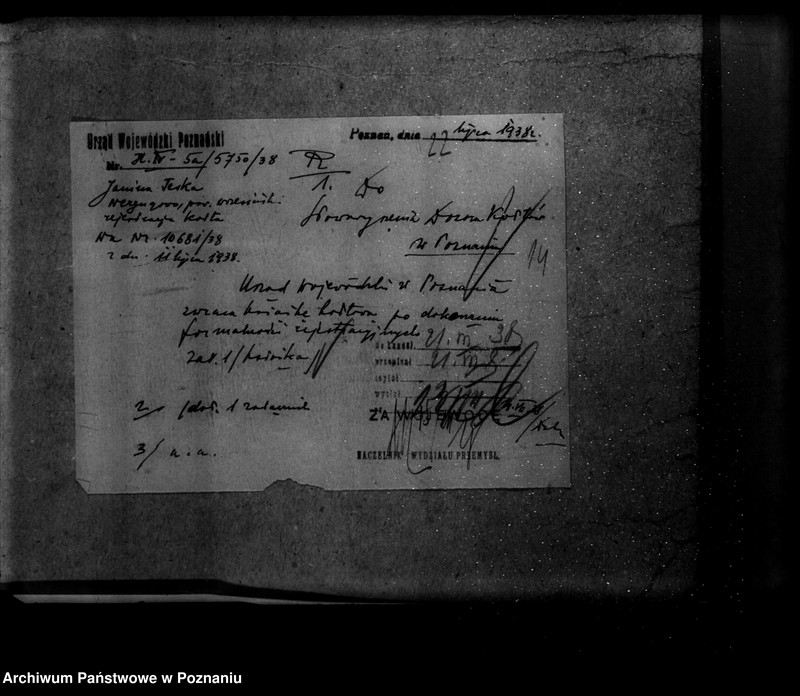 Urząd Wojewódzki Poznański
Nr. H.IV-5a/5750/38
Poznań, dnia 22 lipca 1938r.
Janina Teska
pow. wrzesiński
rejestracja kotła
Na Nr. 10681/38
z dn. 11 lipca 1938.
1. Do
Stowarzyszenia Dozoru Kotłów
w Poznaniu
14
Urząd Wojewódzki w Poznaniu
zwraca książkę kotłową po dokonaniu
formalności rejestracyjnych
zał. 1/książka/
do kancel. 21.VII 38
przepisał 21.VII 8
czytał
wysłał
2/ 1 załącznik
ZA WOJEWODĘ
3/ a.a.
NACZELNIK WYDZIAŁU PRZEMYSŁ.
Archiwum Państwowe w Poznaniu